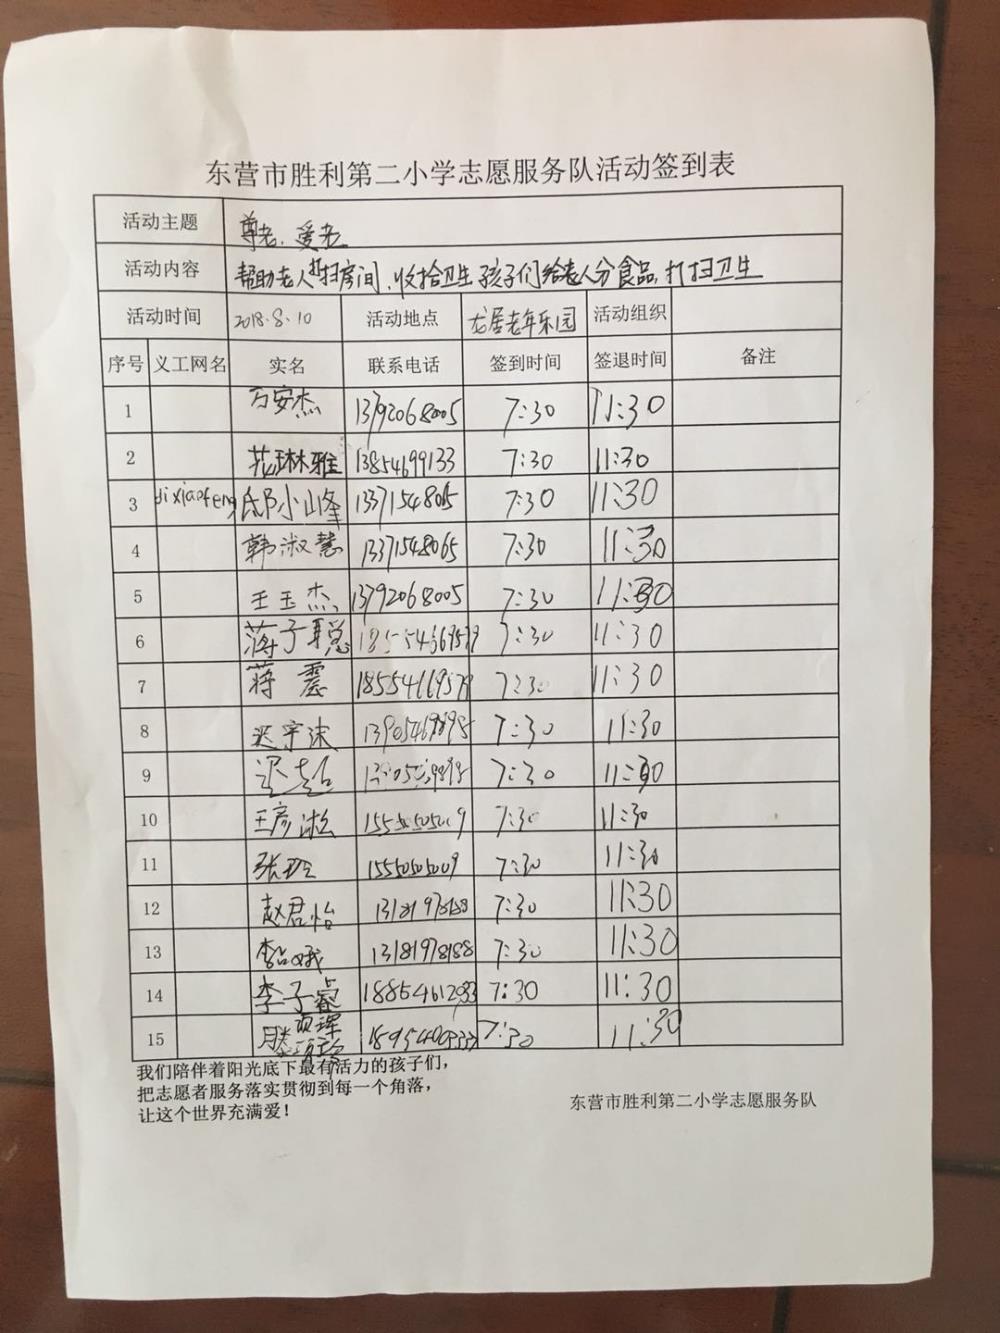 东营市胜利第二小学志愿服务队活动签到表
活动主题 尊老、爱老
活动内容 帮助老人打扫房间、收拾卫生 孩子们给老人分食品,打扫卫生
活动时间 2018.8.10 活动地点 龙居老年乐园 活动组织
序号 义工网名 实名 联系电话 签到时间 签退时间 备注
1 万安杰 13792068005 7:30 11:30
2 范琳雅 13854699133 7:30 11:30
3 jixiaofeng 邸小峰 7:30 11:30
4 韩淑慧 13371548065 7:30 11:30
5 王玉杰 13792068005 7:30 11:30
6 蒋子聪 7:30 11:30
7 蒋震 7:30 11:30
8 迟宇沫 7:30 11:30
9 7:30 11:30
10 王彦淞 7:30 11:30
11 张玲 15550505009 7:30 11:30
12 赵君怡 13181978188 7:30 11:30
13 13181978188 7:30 11:30
14 李子睿 7:30 11:30
15 7:30 11:30
我们陪伴着阳光底下最有活力的孩子们,
把志愿者服务落实贯彻到每一个角落,
让这个世界充满爱!
东营市胜利第二小学志愿服务队